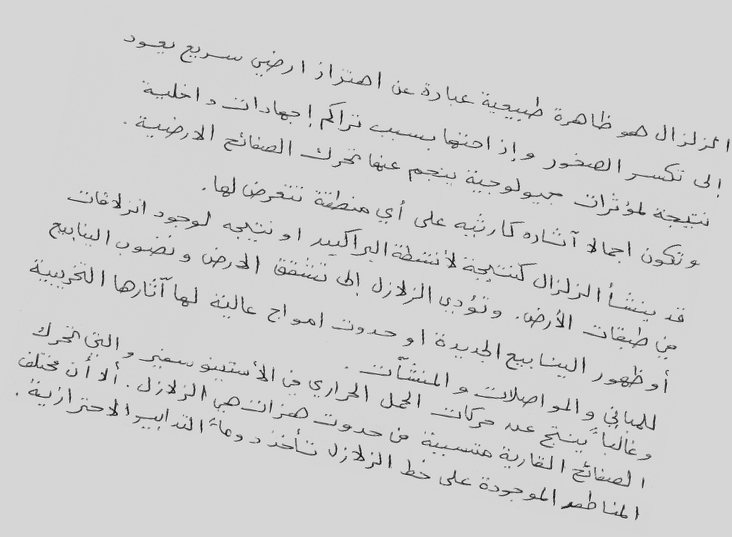 الزلزال هو ظاهرة طبيعية عبارة عن اهتزاز ارضي سريع يعود
إلى تكسر الصخور وإزاحتها بسبب تراكم إجهادات داخلية
نتيجة لمؤثرات جيولوجية ينجم عنها تحرك الصفائح الارضية.
وتكون اجمالا آثاره كارثيه على أي منطقة تتعرض لها.
قد ينشأ الزلزال كنتيجة لأنشطة البراكين او نتيجه لوجود انزلاقات
في طبقات الأرض. وتؤدي الزلازل إلى تشقق الارض و نضوب الينابيع
أو ظهور الينابيع الجديدة او حدوث امواج عالية لها آثارها التخريبية
للمباني والمواصلات و المنشآت.
وغالباً ينتج عن حركات الحمل الحراري في الأستينوسفير والتي تحرك
الصفائح القارية متسببة في حدوث هزات هي الزلازل. ألا أن مختلف
المناطق الموجودة على خط الزلازل تأخذ دوماً التدابير الاحترازية.